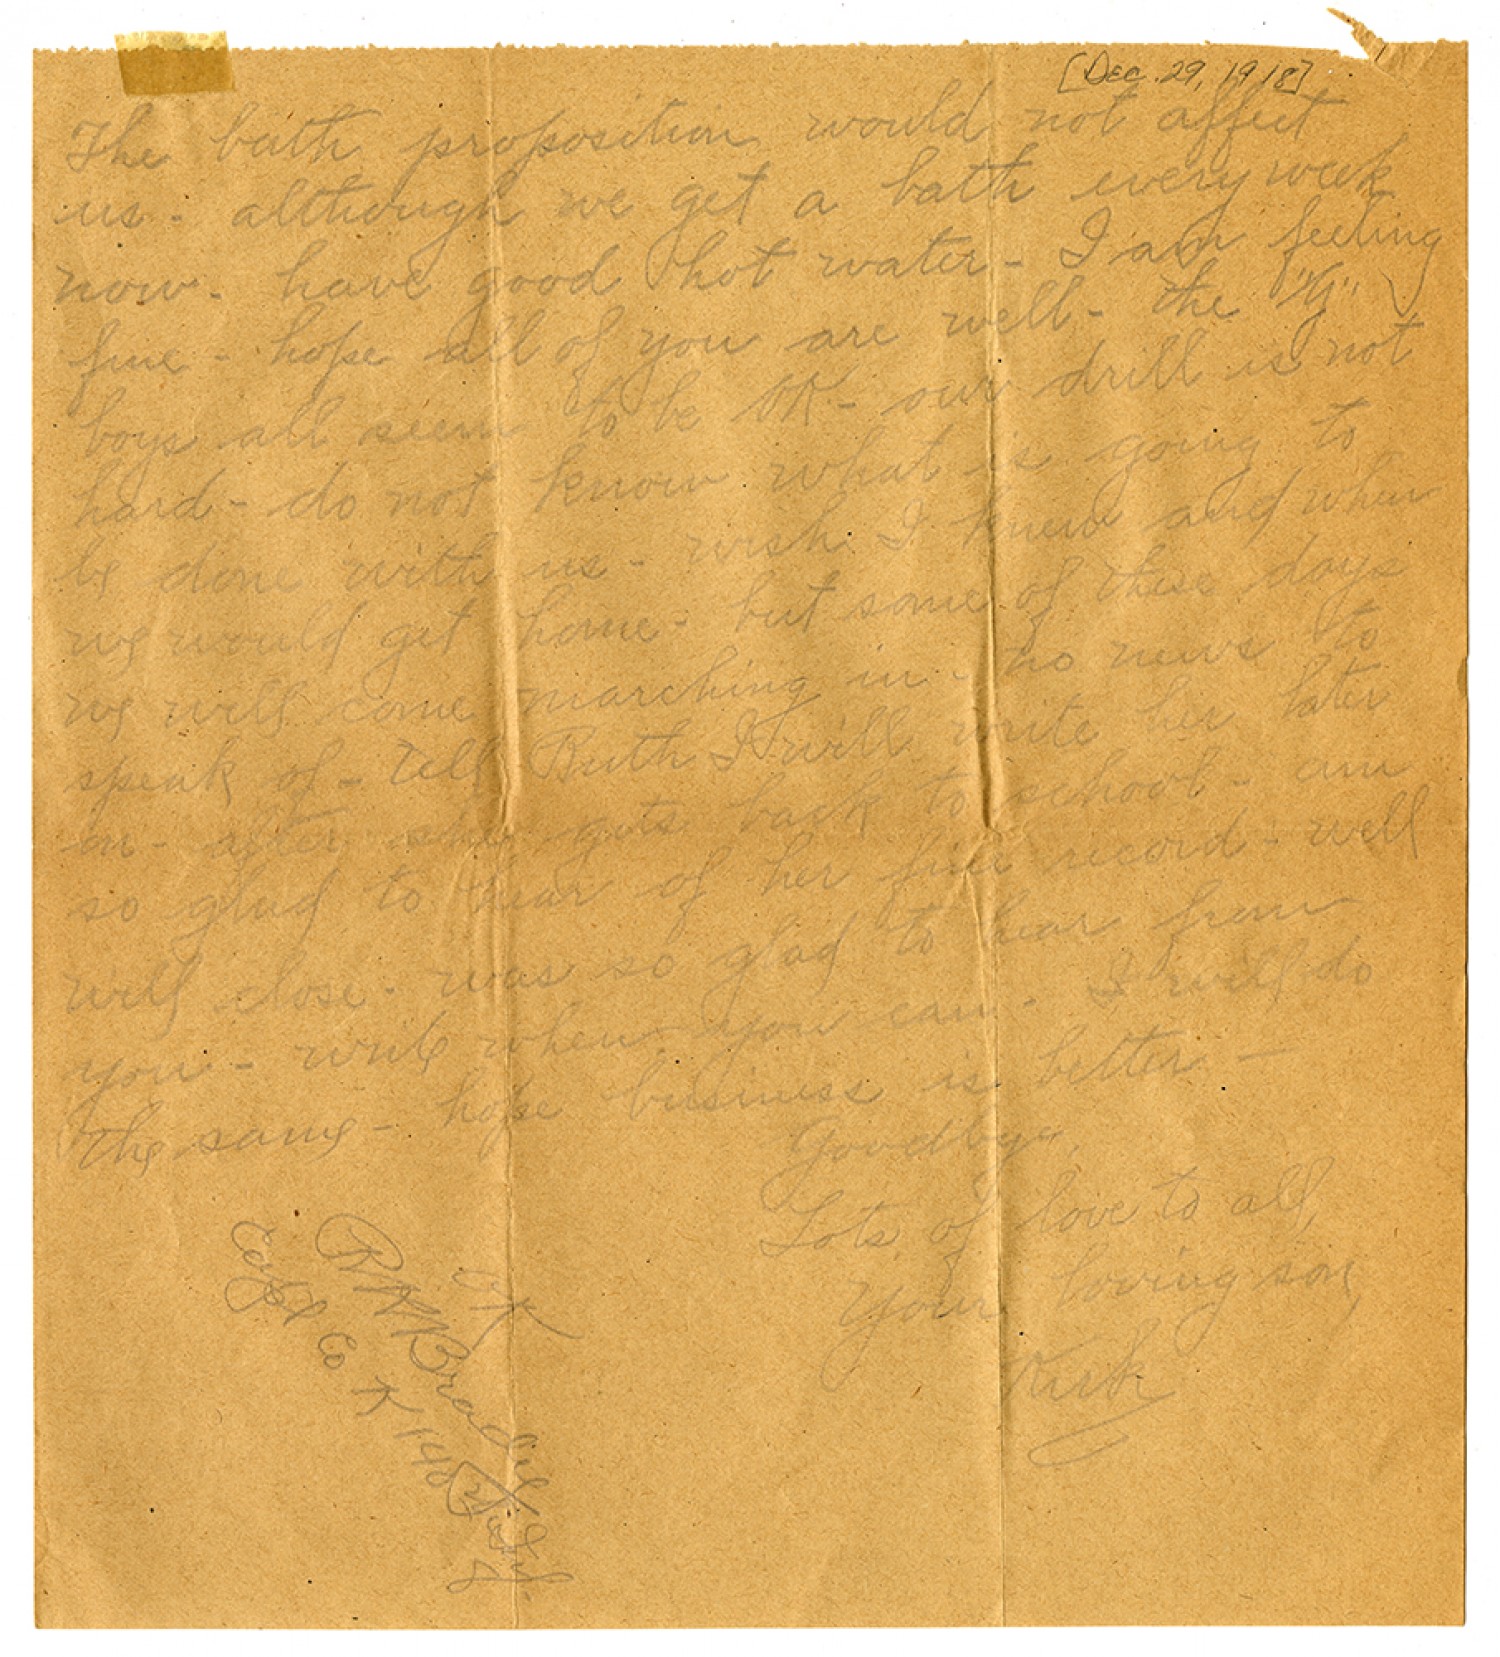 [Dec. 29, 1918]
The bath proposition would not affect
us - although we get a bath every week
now - have good hot water - I am feeling
fine - hope all of you are well - the "Y"
boys all seem to be OK - our drill is not
hard - do not know what is going to
be done with us - wish I knew and when
we would get home - but some of these days
we will come marching in - no news to
speak of - tell Ruth I will write her later
on - after she gets back to school - am
so glad to hear of her fine record - well
will close - was so glad to hear from
you - write when you can - I will do
the same - hope business is better -
Goodbye,
Lots of love to all,
Your loving son,
OK
Capt Co K 140